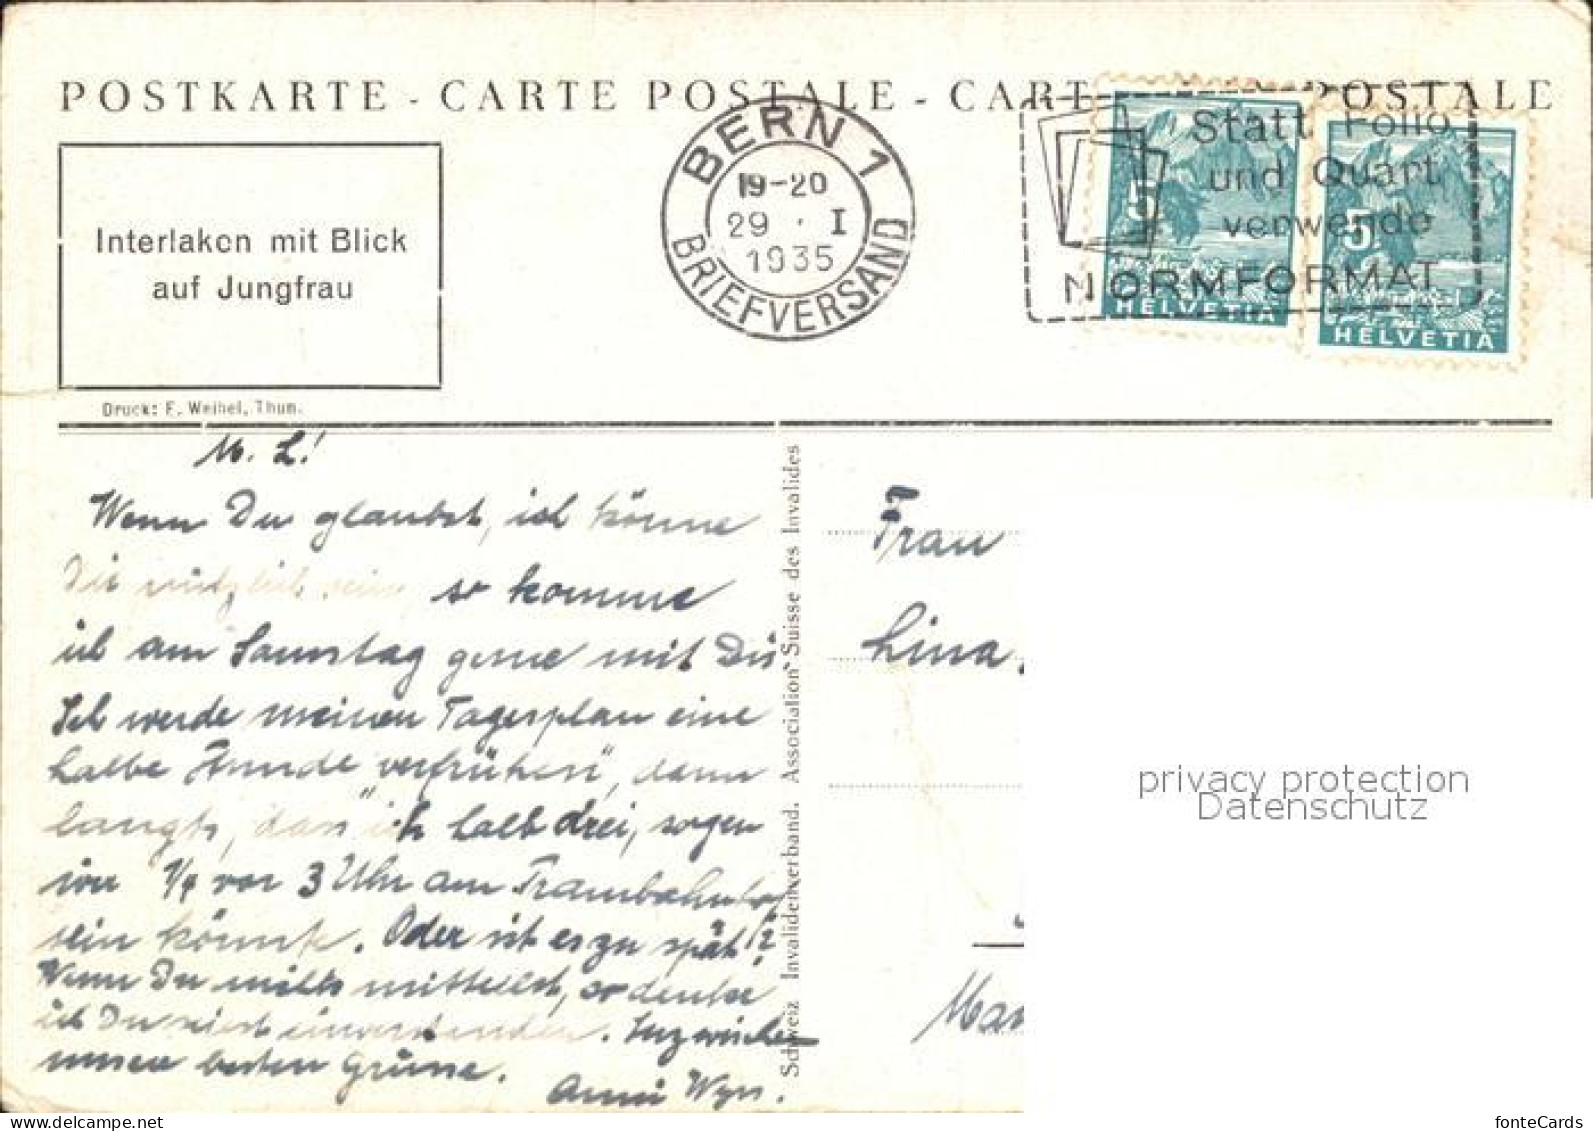 POSTKARTE - CARTE POSTALE - CART POSTALE
Interlaken mit Blick
auf Jungfrau
Druck: F. Weibel, Thun.
BERN 1
19-20
29 · I
1935
BRIEFVERSAND
Statt Folio
und Quart
verwende
NORMFORMAT
5
HELVETIA
5
HELVETIA
M. L!
Wenn Du glaubst, ich könne
Dir nützlich sein, so komme
ich am Samstag gerne mit Dir
Ich werde meinen Tagesplan eine
halbe Stunde "verfrühen", dann
langts, dass ich halb drei, sogen
wir 1/4 vor 3 Uhr am Trambahnhof
sein könnte. Oder ist es zu spät?
Wenn Du nichts mitteilst, so denke
ich Du seiest einverstanden. Inzwischen
unsere besten Grüsse.
Anni Wyss.
Schweiz Invalidenverband. Association Suisse des Invalides
Frau
Lina
privacy protection
Datenschutz
fonteCards
www.delcampe.net